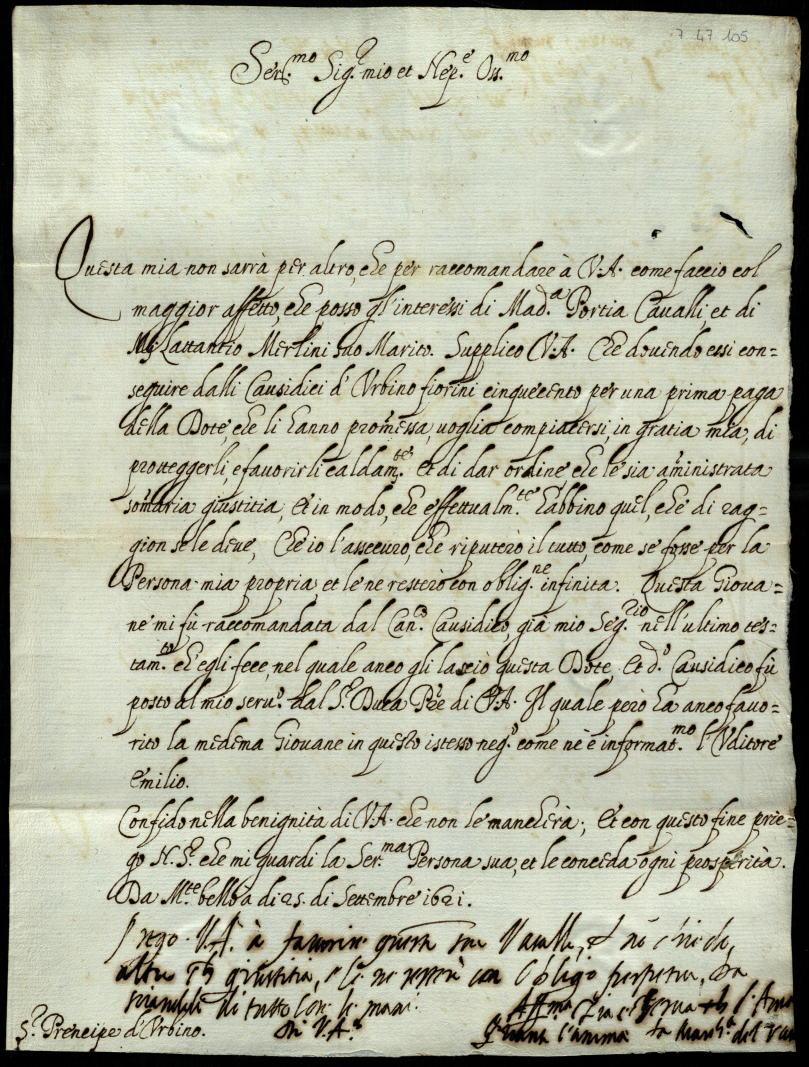 7 47 105
Ser.mo Sig.r mio et Nep.e Oss.mo
Questa mia non sarrà per altro, che per raccomandare à V.A. come faccio col
maggior affetto, che posso gl'interessi di Mad.a Portia Cavalli et di
Lattantio Merlini suo Marito. Supplico V.A. che dovendo essi con=
seguire dalli Causidici d'Urbino fiorini cinquecento per una prima paga
della Dote che li hanno promessa, voglia compiacersi, in gratia mia, di
proteggerli, e favorirli caldam.te et di dar ordine, che le sia aministrata
somaria giustitia, et in modo, che effettualm.te habbino quel, che di rag=
gion se le deve, che io l'assecuro, che riputerò il tutto, come se fosse per la
Persona mia propria, et le ne resterò con oblig.ne infinita. Questa Giova=
ne mi fù raccomandata dal Can.co Causidico, già mio Seg.rio nell'ultimo tes=
tam.to ch'egli fece, nel quale anco gli lasciò questa Dote. Et d.o Causidico fù
posto al mio serv.o dal S.r Duca P're di V.A. Il quale però ha anco favo=
rito la medema Giovane in questo istesso neg.o come nè è informat.mo l'Uditore
Emilio.
Confido nella benignità di V.A. che non le mancherà; Et con questo fine prie=
go N.S.r che mi guardi la Ser.ma Persona sua, et le conceda ogni prosperità.
Da M.te bello à di 25. di Settembre 1621.
Prego V.A. à favorire questa sua Vasalla, et nò chiede
altro giustitia, e le ne resterà con obligo perpetuo,
di tutto Cor le mani
Di V.A.
Aff.ma Zia e Serva
l'anima la March.a del
S.r Prencipe d'Urbino.